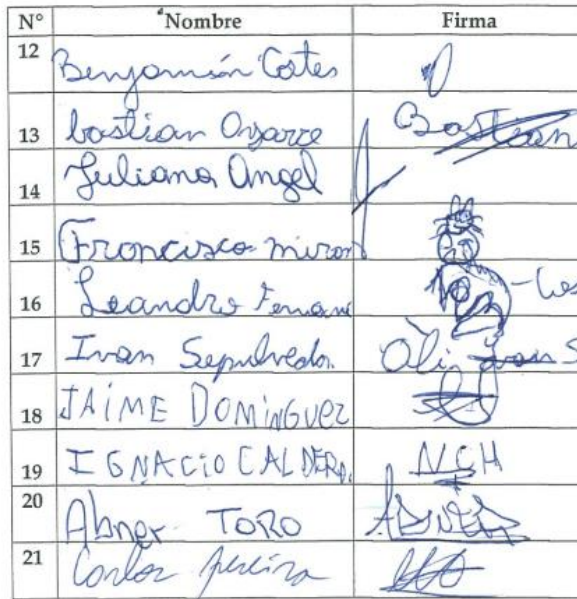 N° Nombre Firma
12 Benjamín Cortes
13 bastian Oyarce Bastian
14 Juliana Angel
15 Francisco miron
16 Leandro
17 Ivan Sepulveda
18 JAIME DOMINGUEZ
19 IGNACIO CALDERO. NCH
20 Abner TORO ABNER
21 Carlos pereira